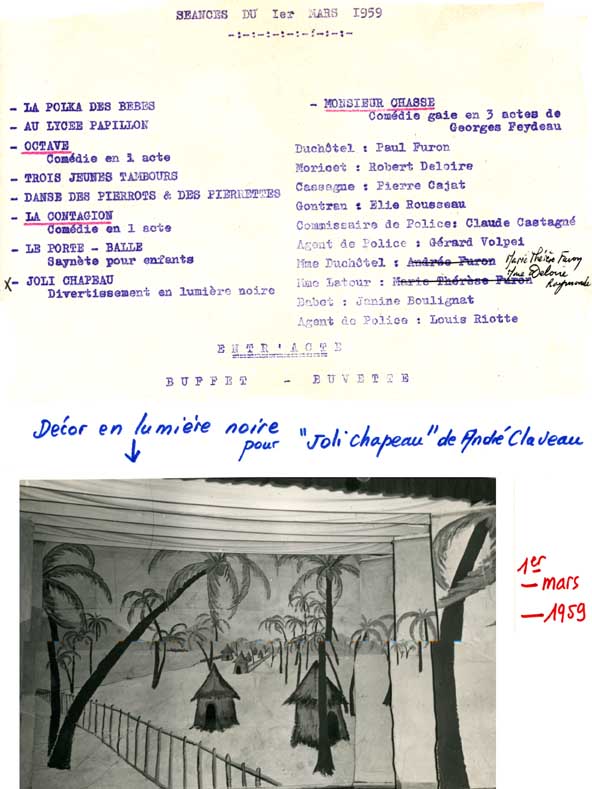 SEANCES DU 1er MARS 1959
-:-:-:-:-:-:-:-
- LA POLKA DES BEBES
- AU LYCEE PAPILLON
- OCTAVE
Comédie en 1 acte
- TROIS JEUNES TAMBOURS
- DANSE DES PIERROTS & DES PIERRETTES
- LA CONTAGION
Comédie en 1 acte
- LE PORTE - BALLE
Saynète pour enfants
X- JOLI CHAPEAU
Divertissement en lumière noire
- MONSIEUR CHASSE
Comédie gaie en 3 actes de
Georges Feydeau
Duchôtel : Paul Furon
Moricet : Robert Deloire
Cassagne : Pierre Cajat
Gontran : Elie Rousseau
Commissaire de Police: Claude Castagné
Agent de Police : Gérard Volpei
Mme Duchôtel : Andrée Furon Marie Thérèse Furon
Mme Latour : Marie Thérèse Furon Mme Deloire
Raymonde
Babet : Janine Boulignat
Agent de Police : Louis Riotte
ENTR'ACTE
BUFFET - BUVETTE
Décor en lumière noire
pour "Joli chapeau" de André Claveau
1er
- mars
- 1959